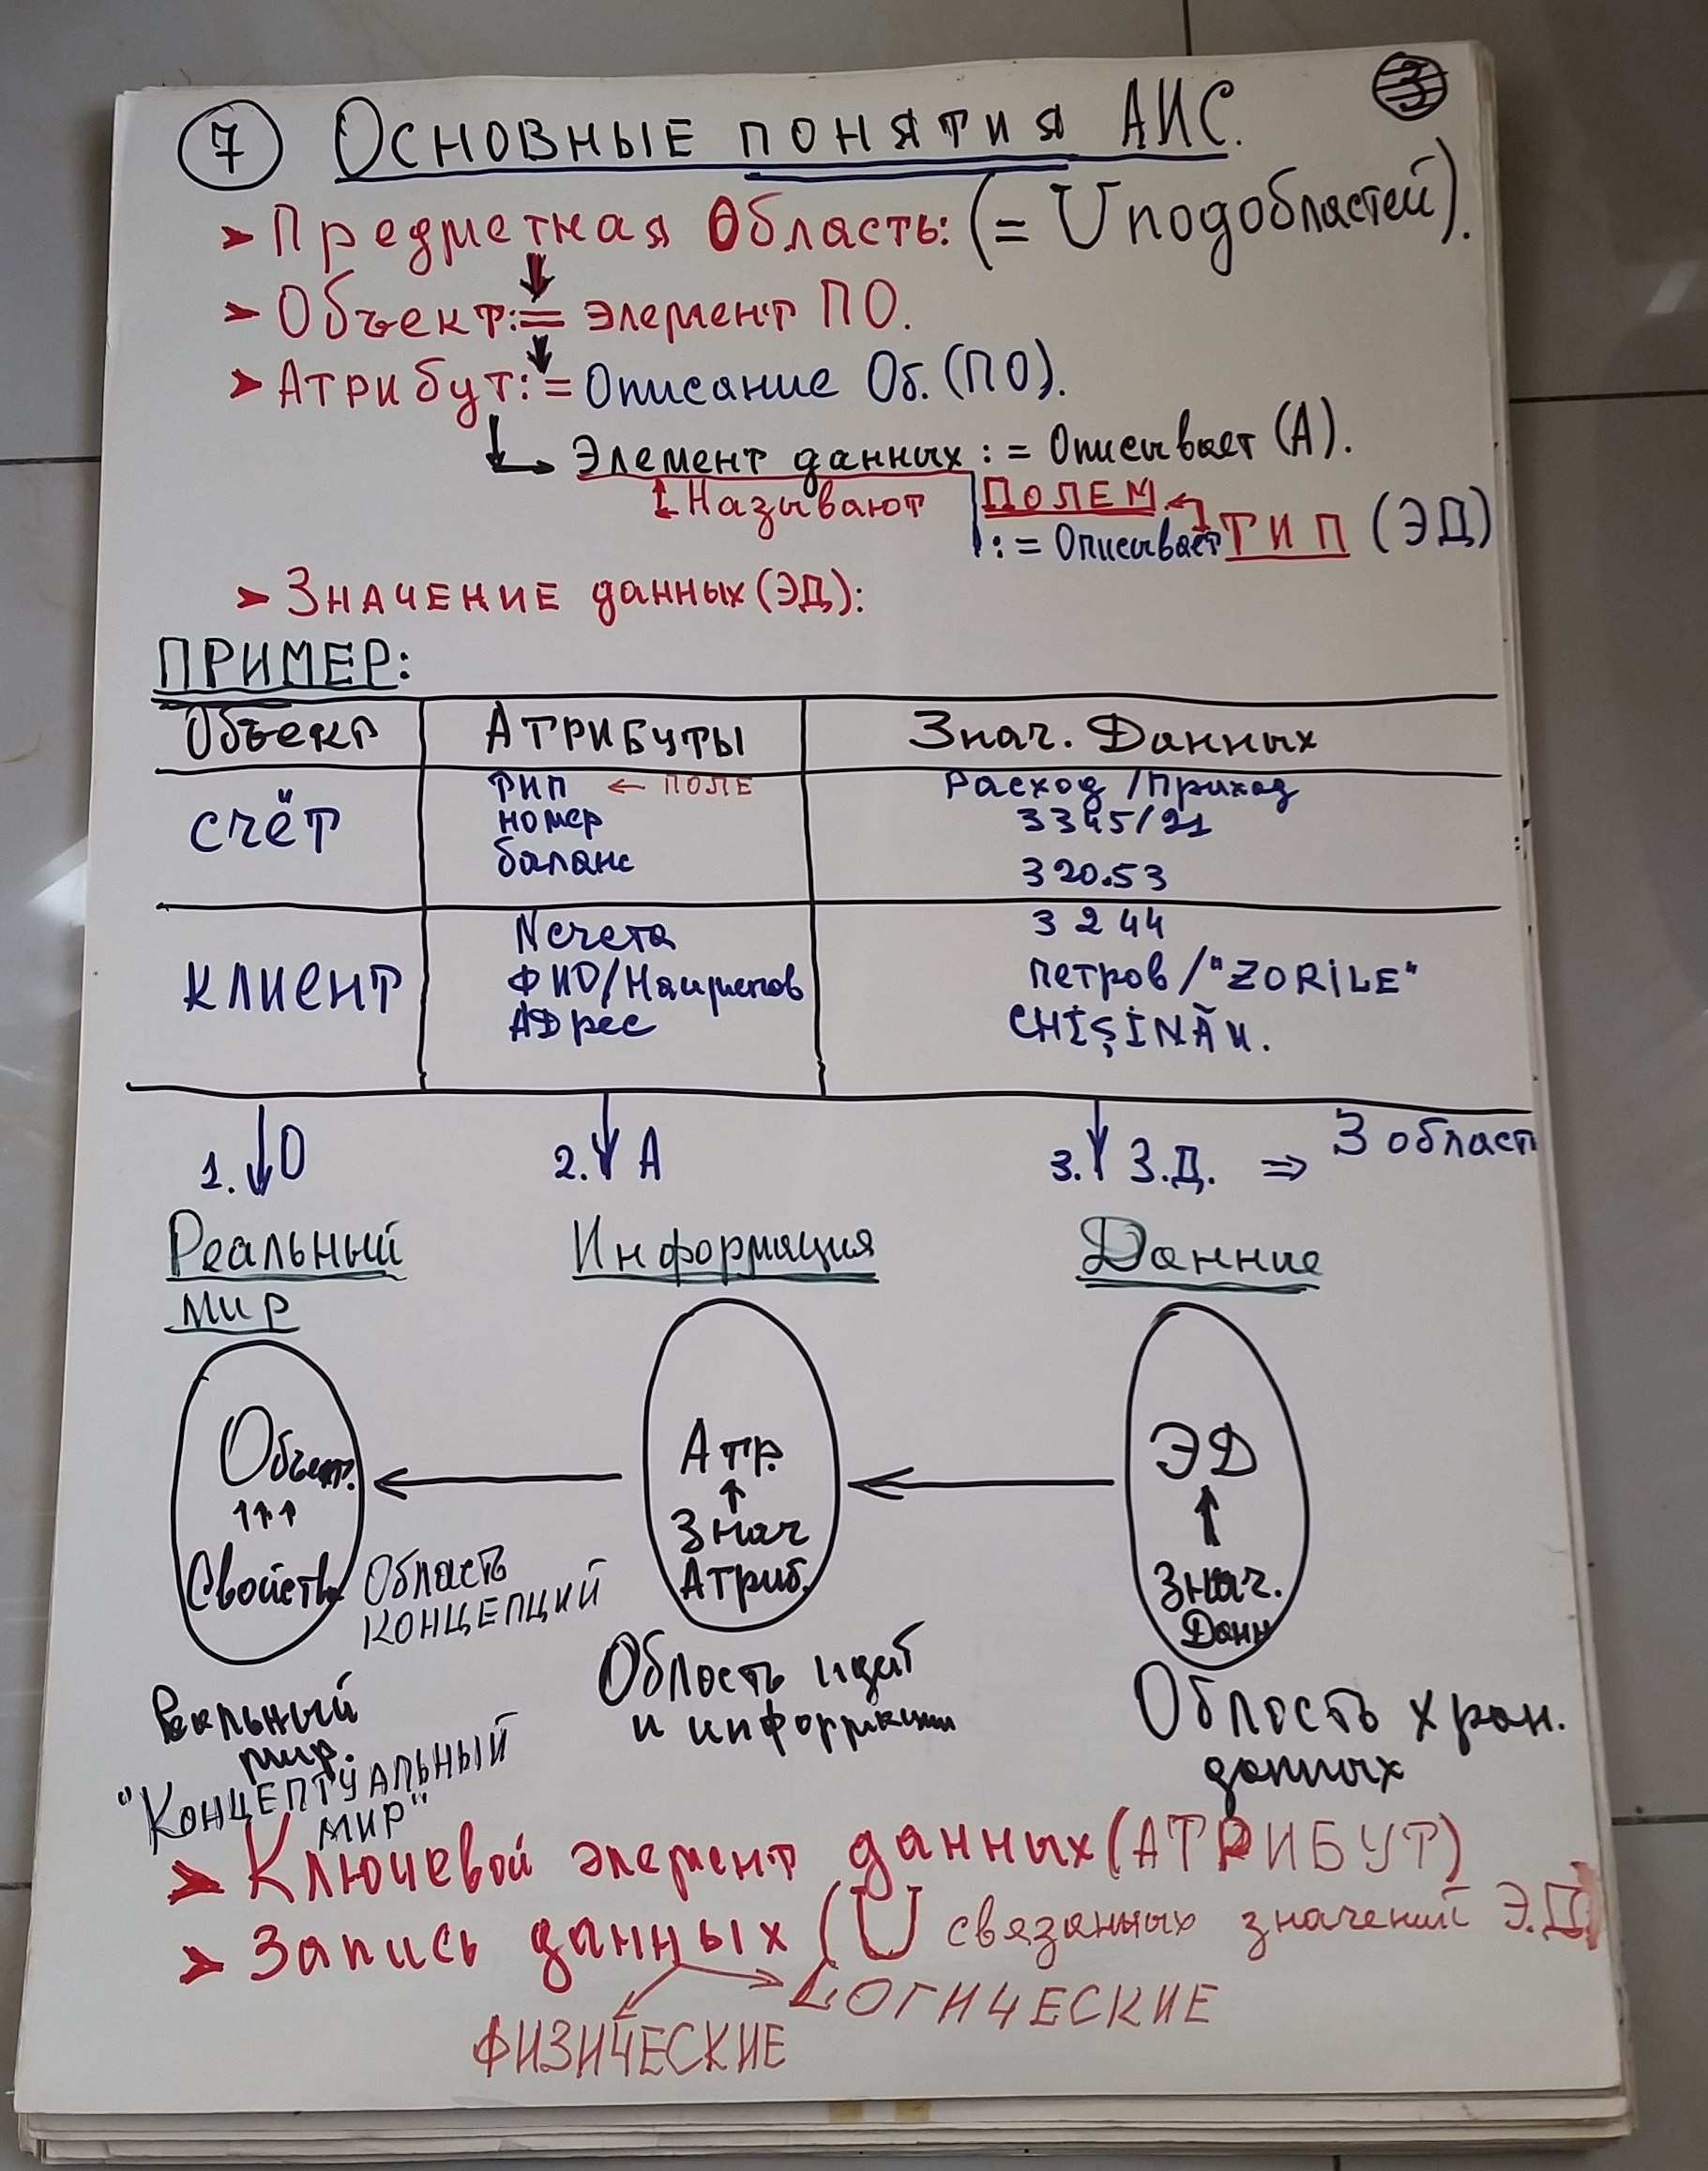 7 ОСНОВНЫЕ ПОНЯТИЯ АИС. 3
➢ Предметная Область: (= U подобластей).
➢ Объект := элемент ПО.
➢ Атрибут := Описание Об. (ПО).
Элемент данных := Описывает (А).
Называют ПОЛЕМ
:= Описывает ТИП (ЭД)
➢ ЗНАЧЕНИЕ данных (ЭД):
ПРИМЕР:
Объект АТРИБУТЫ Знач. Данных
счёт тип ← ПОЛЕ Расход / Приход
номер 3345/21
баланс 320.53
клиент N счета 3244
ФИО/Наименов петров / "ZORILE"
АДрес CHIȘINĂU.
1. ↓ О 2. ↓ А 3. ↓ З.Д. ⇒ 3 област
Реальный Информация Данние
мир
Объект. ← Атр. ← ЭД
↑↑↑ ↑ ↑
Свойств Знач Знач.
Атриб. Данн
Область
концепций
Реальный
мир.
Область идей
и информации
Область хран.
данных
"Концептуальный
мир"
➢ Ключевой элемент данных (АТРИБУТ)
➢ Запись данных (U связанных значений Э.Д)
ЛОГИЧЕСКИЕ
ФИЗИЧЕСКИЕ